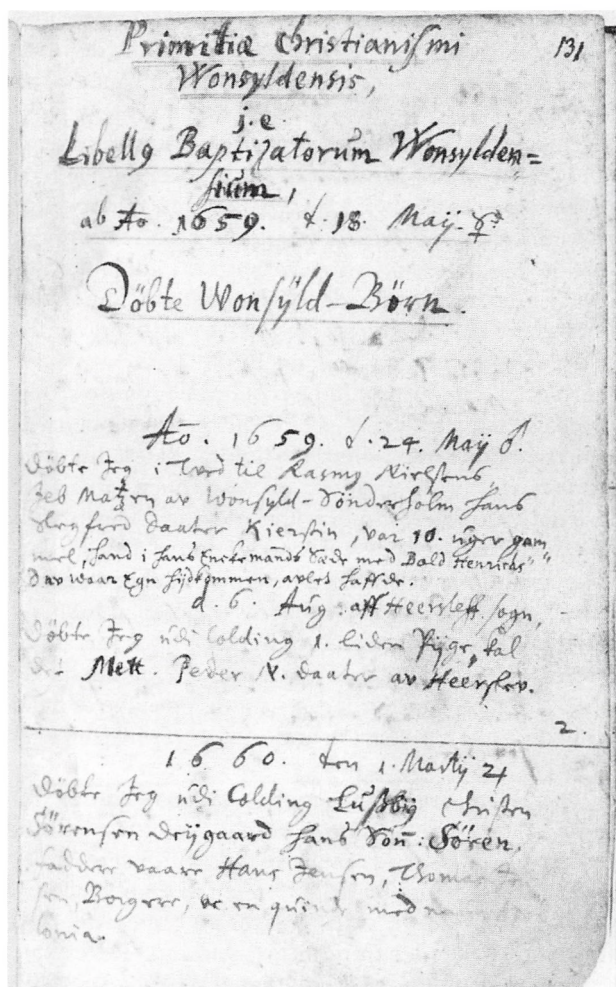 Primitiæ Christianismi 131
Wonsyldensis,
j. e.
Libellꝯ Baptizatorum Wonsylden=
sium,
ab Ao. 1659. d. 18. Maij.
Döbte Wonsÿld-Börn.
Ao. 1659. d. 24. Maij ♂.
Döbte Jeg i Tved til Rasmꝯ Nielsens
Jeb Matzen av Wonsyld-Sönderholm hans
Slegfred Daater Kierstin, var 10. uger gam
mel, hand i hans Enckemands Sæde med Bold Henrichs
D av Waar Egn hidkommen, avlet haffde.
d. 6. Aug: aff Heersleff sogn,
Döbte Jeg udi Colding 1. liden Pige, kal
det Mett. Peder N. Daater av Heerslev.
2.
1660. den 1. Martij ♃
Döbte Jeg udi Colding Christen
Sörensen Deÿgaard hans Sön: Sören.
Faddere vaare Hans Jensen, Thomas
sen, Borgere, oc en quinde med naun
lonia.